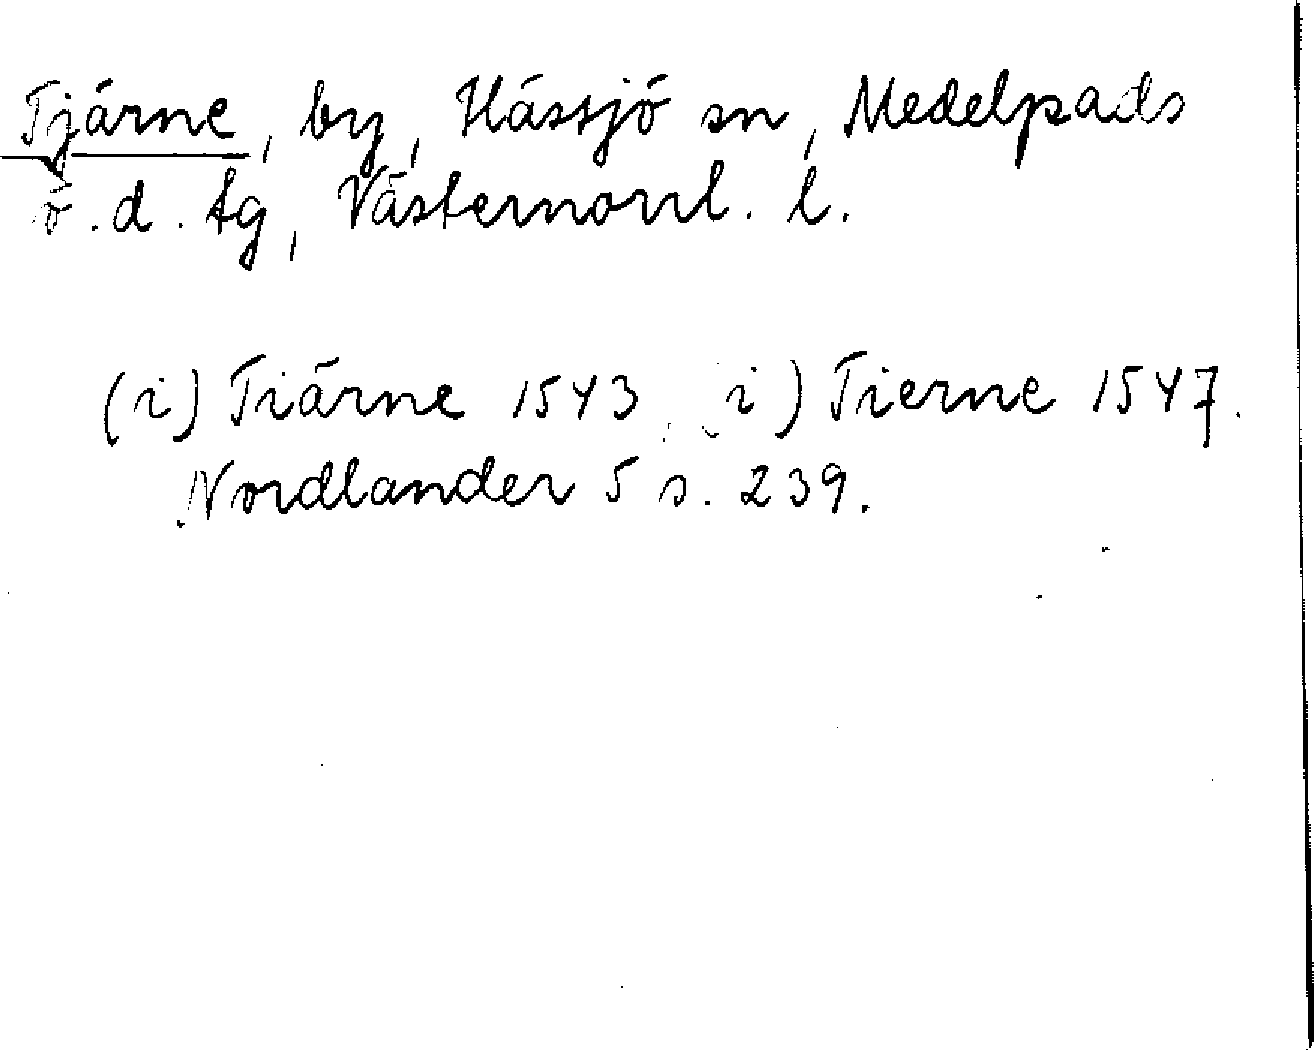 Tjärne, by, Hässjö sn, Medelpads
ö. d. tg, Västernorrl. l.
(i) Tiärne 1543, (i) Tierne 1547.
Nordlander 5 s. 239.